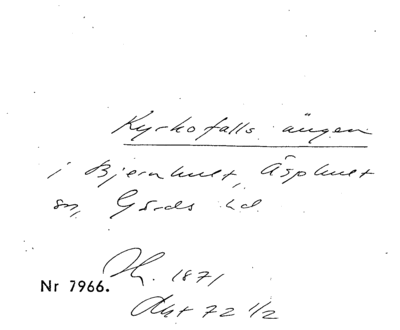 Kyrkofalls ängen
i Bjernhult, Äsphult
sn, Gärds hd
1871
Nr 7966.
Akt 72 1/2